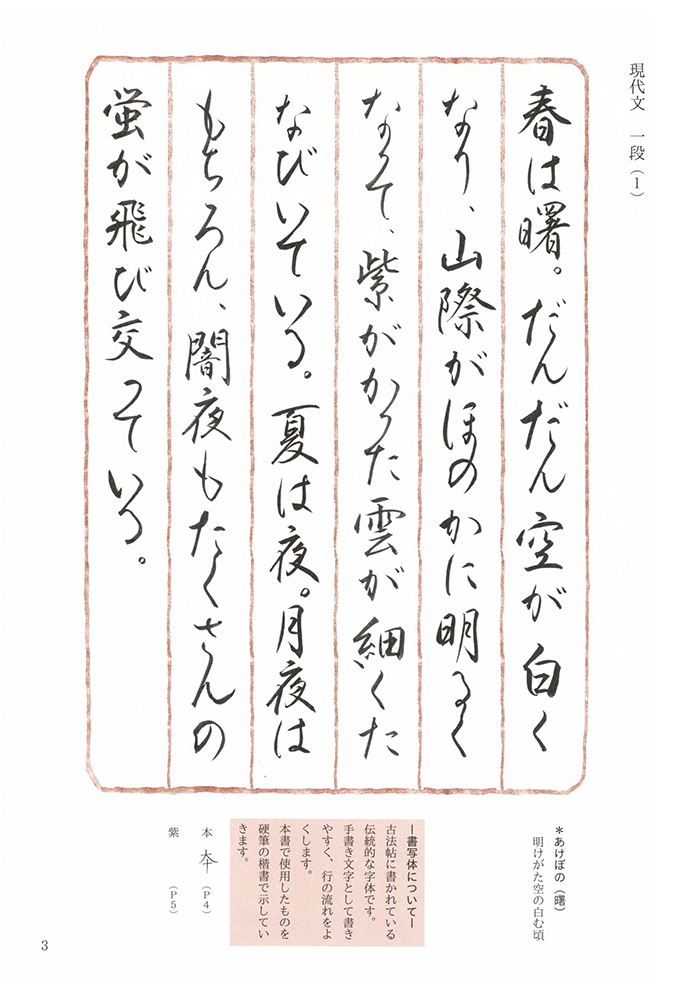 現代文 一段(1)
春は曙。だんだん空が白く
なり、山際がほのかに明るく
なって、紫がかった雲が細くた
なびいている。夏は夜。月夜は
もちろん、闇夜もたくさんの
蛍が飛び交っている。
*あけぼの(曙)
明けがた空の白む頃
ー書写体についてー
古法帖に書かれている
伝統的な字体です。
手書き文字として書き
やすく、行の流れをよ
くします。
本書で使用したものを
硬筆の楷書で示してい
きます。
本 夲 (P4)
紫 (P5)
3